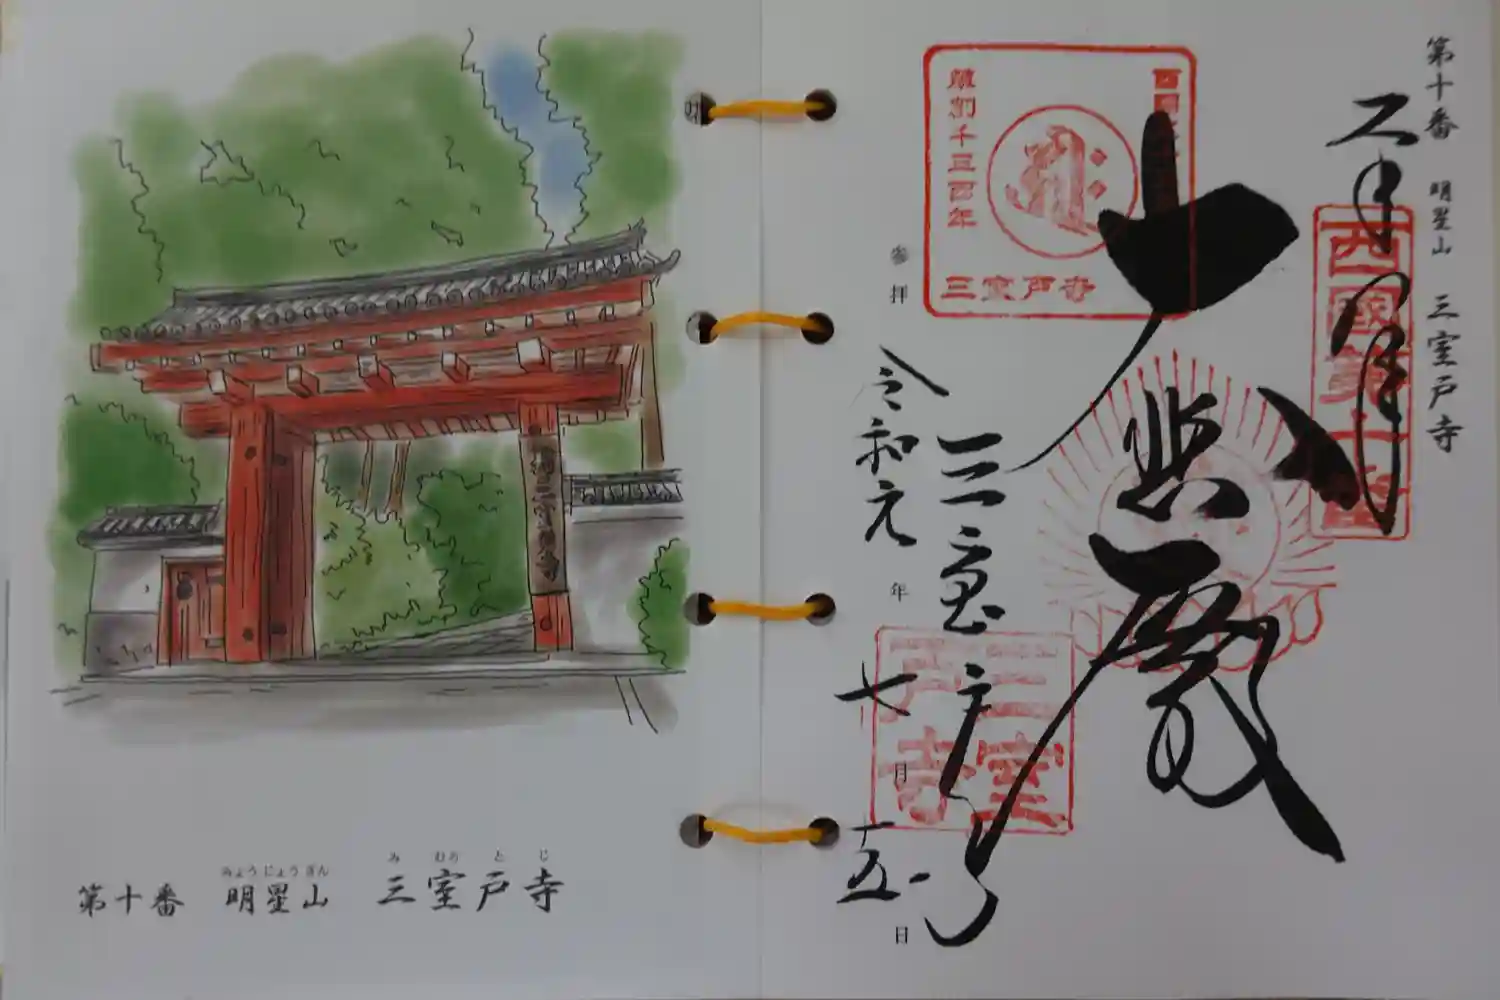 第十番 明星山 三室戸寺
奉拝
西国第十番
大悲殿
草創千三百年
三室戸寺
三室戸寺
三室戸寺
参拝
令和元年七月十五日
みょうじょうざん み むろ と じ
第十番 明星山 三室戸寺